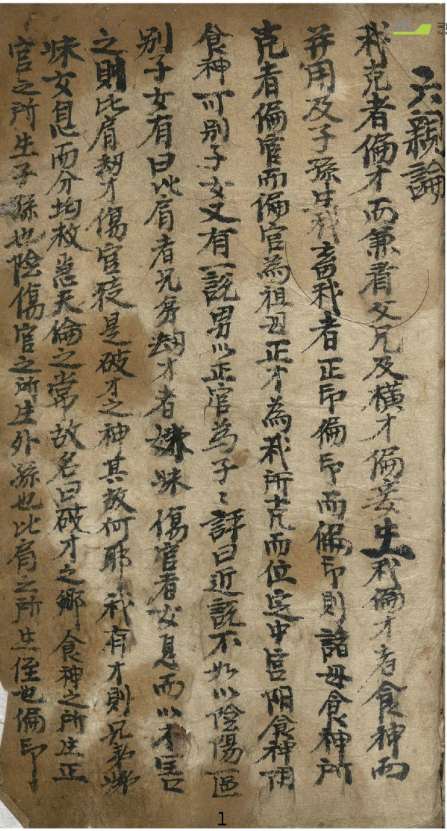 六親論
我克者偏才而兼看父兄及橫才偏妾生我偏才者食神而
并用及子孫生我畜我者正印偏印而偏印則諸母食神所
克者偏官而偏官為祖母正才為我所克而位定中宮陽食神陰
食神可別子女又有一說男以正官為子〻評曰近說不如以陰傷區
別子女有曰比肩者兄弟刼才者妹傷官者女息而以才害
之則比肩刼才傷官疑是破才之神其故何耶我有才則兄弟
妹女息而分均救急天倫之常故名曰破才之鄉食神之所生正
官之所生子孫也陰傷官之所生外孫也比肩之所生侄也偏印
1